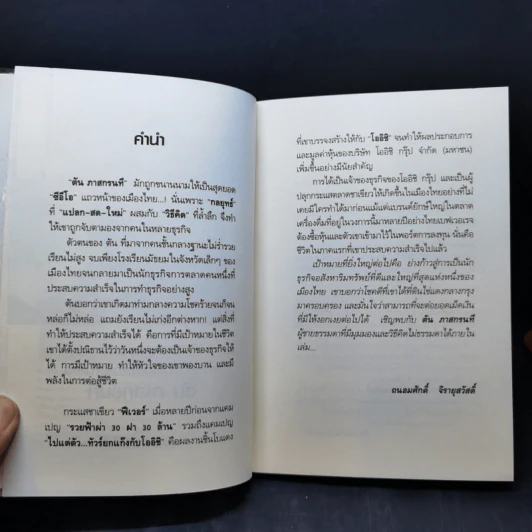 คำนำ
"ตัน ภาสกรนที" มักถูกขนานนามให้เป็นสุดยอด
"ซีอีโอ" แถวหน้าของเมืองไทย...! นั่นเพราะ "กลยุทธ์"
ที่ "แปลก-สด-ใหม่" ผสมกับ "วิธีคิด" ที่ล้ำลึก จึงทำ
ให้เขาถูกจับตามองจากคนในหลายธุรกิจ
ตัวตนของ ตัน ที่มาจากคนชั้นกลางฐานะไม่ร่ำรวย
เรียนไม่สูง จบเพียงโรงเรียนมัธยมในจังหวัดเล็กๆ ของ
เมืองไทยจนกลายมาเป็นนักธุรกิจการตลาดคนหนึ่งที่
ประสบความสำเร็จในการทำธุรกิจอย่างสูง
ตันบอกว่าเขาเกิดมาท่ามกลางความโชคร้ายจนก็จน
หล่อก็ไม่หล่อ แถมยังเรียนไม่เก่งอีกต่างหาก! แต่สิ่งที่
ทำให้ประสบความสำเร็จได้ คือการที่มีเป้าหมายในชีวิต
เขาได้ตั้งปณิธานไว้ว่าวันหนึ่งจะต้องเป็นเจ้าของธุรกิจให้
ได้ การมีเป้าหมาย ทำให้หัวใจของเขาพองบาน และมี
พลังในการต่อสู้ชีวิต
กระแสชาเขียว "ฟีเวอร์" เมื่อหลายปีก่อนจากแคม
เปญ "รวยฟ้าผ่า 30 ฝา 30 ล้าน" รวมถึงแคมเปญ
"ไปแต่ตัว...ทัวร์ยกแก๊งกับโออิชิ" คือผลงานชิ้นโบแดง
ที่เขาบรรจงสร้างให้กับ "โออิชิ" จนทำให้ผลประกอบการ
และมูลค่าหุ้นของบริษัท โออิชิ กรุ๊ป จำกัด (มหาชน)
เพิ่มขึ้นอย่างมีนัยสำคัญ
การได้เป็นเจ้าของธุรกิจของโออิชิ กรุ๊ป และเป็นผู้
ปลุกกระแสตลาดชาเขียวให้เกิดขึ้นในเมืองไทยอย่างที่ไม่
เคยมีใครทำได้มาก่อน แม้แต่แบรนด์ยักษ์ใหญ่ในตลาด
เครื่องดื่มที่อยู่ในวงการนี้มาหลายสิบปีอย่างไทยเบฟเวอเรจ
ต้องซื้อหุ้นและตัวเขาเข้ามาไว้ในพอร์ตการลงทุน นั่นคือ
ชีวิตในภาคแรกที่เขาประสบความสำเร็จไปแล้ว
เป้าหมายที่ยิ่งใหญ่ต่อไปคือ ย่างก้าวสู่การเป็นนัก
ธุรกิจอสังหาริมทรัพย์ที่ดีและใหญ่ที่สุดแห่งหนึ่งของ
เมืองไทย เขาบอกว่าโชคดีที่เขาได้ที่ดินใช่แดงกลางกรุง
มาครอบครอง และมั่นใจว่าสามารถที่จะต่อยอดเม็ดเงิน
ที่มีให้งอกเงยต่อไปได้ เชิญพบกับ ตัน ภาสกรนที
ผู้ชายธรรมดาที่มีมุมมองและวิธีคิดไม่ธรรมดาได้ภายใน
เล่ม...
ถนอมศักดิ์ จิรายุสวัสดิ์